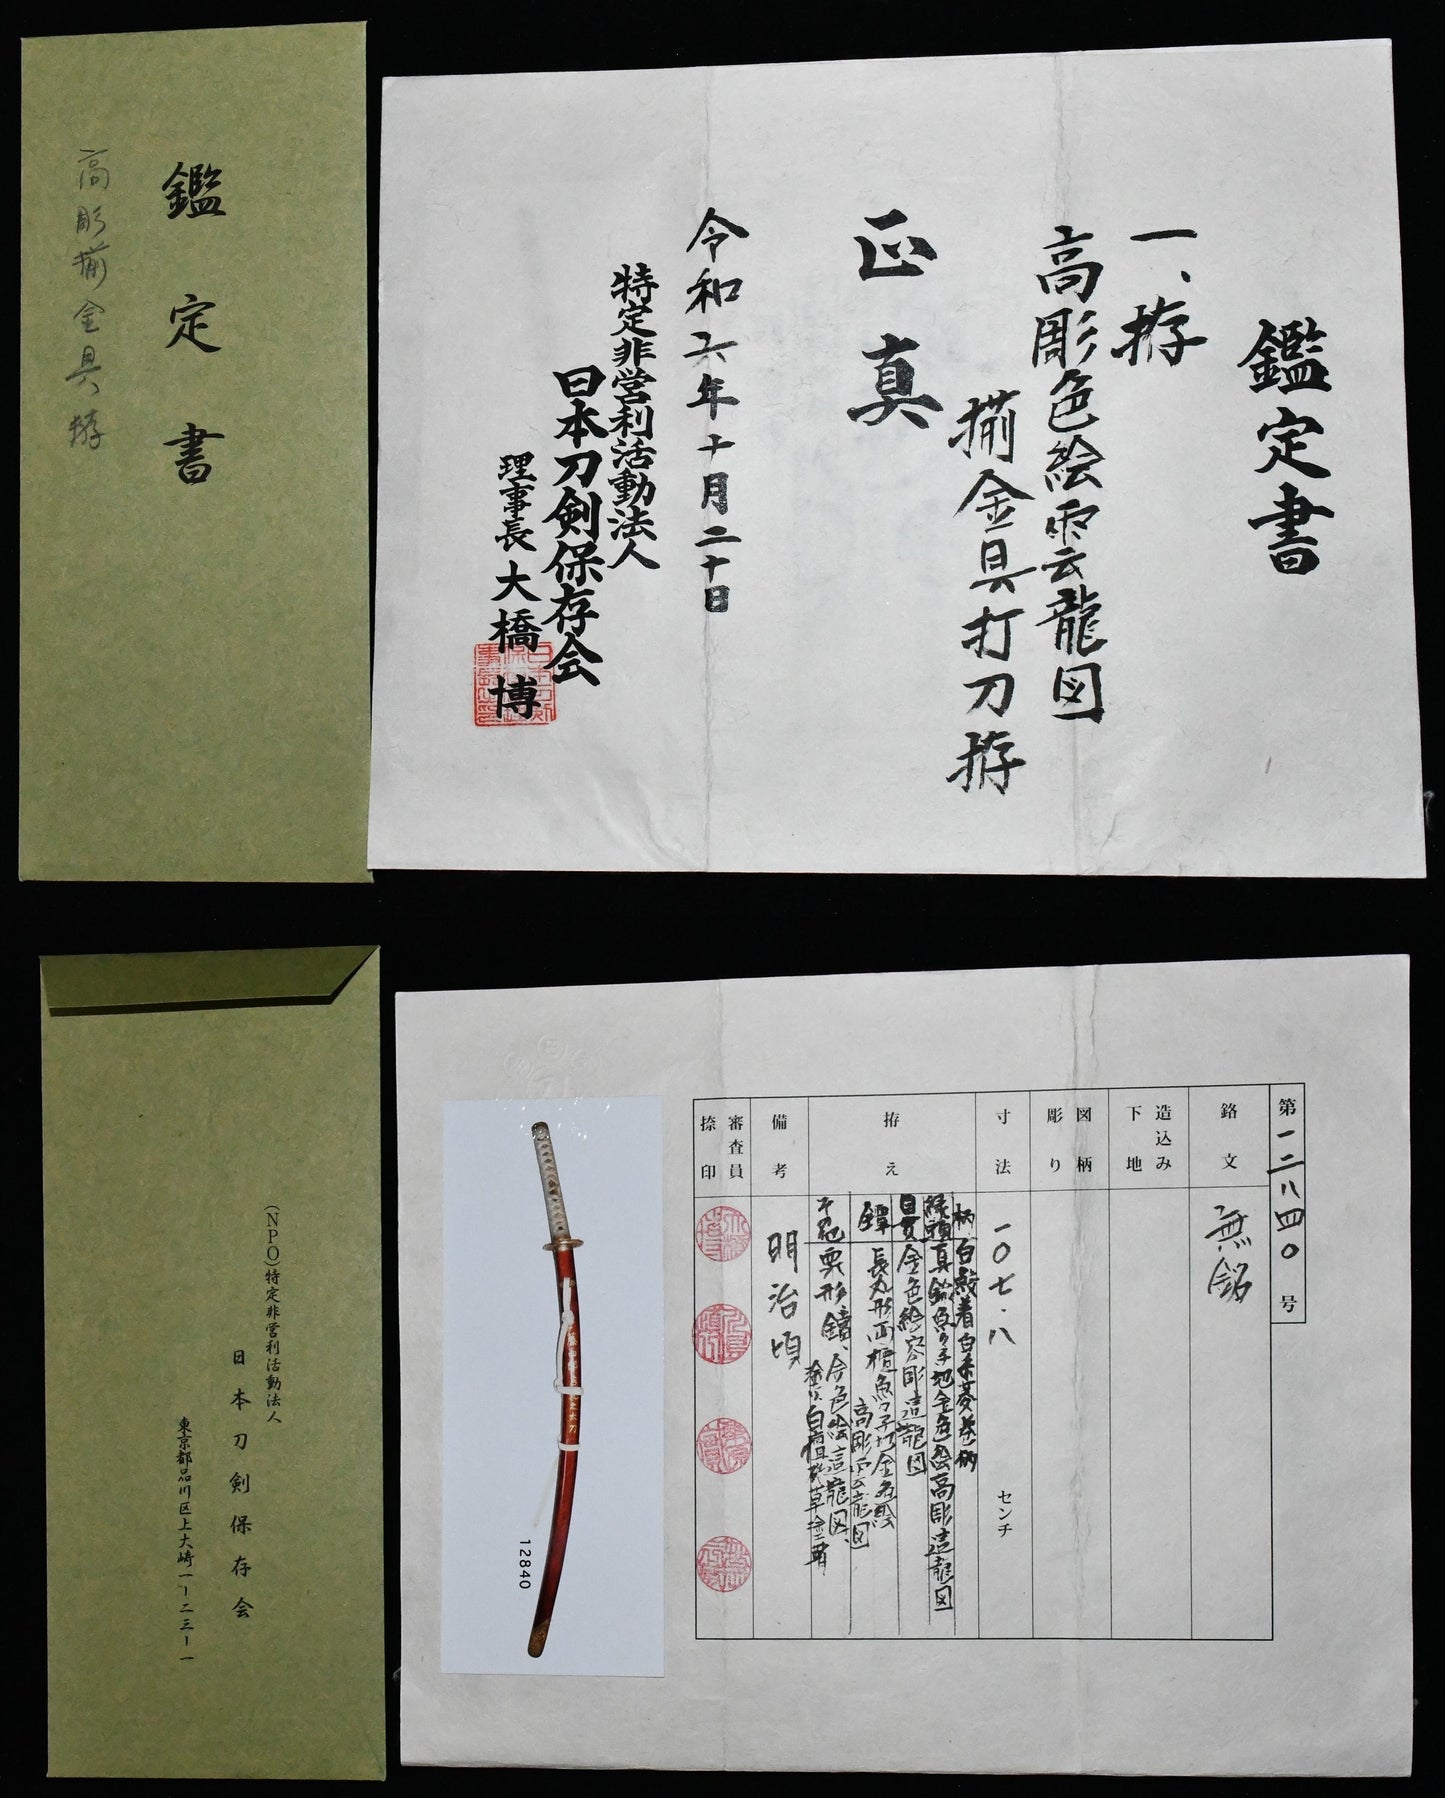 鑑定書
高彫揃金具拵
鑑定書
一、拵
高彫色絵雲龍図
揃金具打刀拵
正真
令和六年十月二十日
特定非営利活動法人
日本刀剣保存会
理事長 大橋 博
(NPO)特定非営利活動法人
日本刀剣保存会
東京都品川区上大崎一ー二三ー一
第一二八四〇号
銘文
無銘
造込み
下地
図柄
彫り
寸法
一〇七.八
センチ
拵え
柄 白鮫着白糸菱巻柄
縁頭 真鍮魚々子地金色絵高彫這龍図
目貫 金色絵容彫這龍図
鐔 長丸形両櫃魚々子地金色絵
高彫雲龍図
金色絵這龍図
備考
明治頃
審査員
捺印
12840